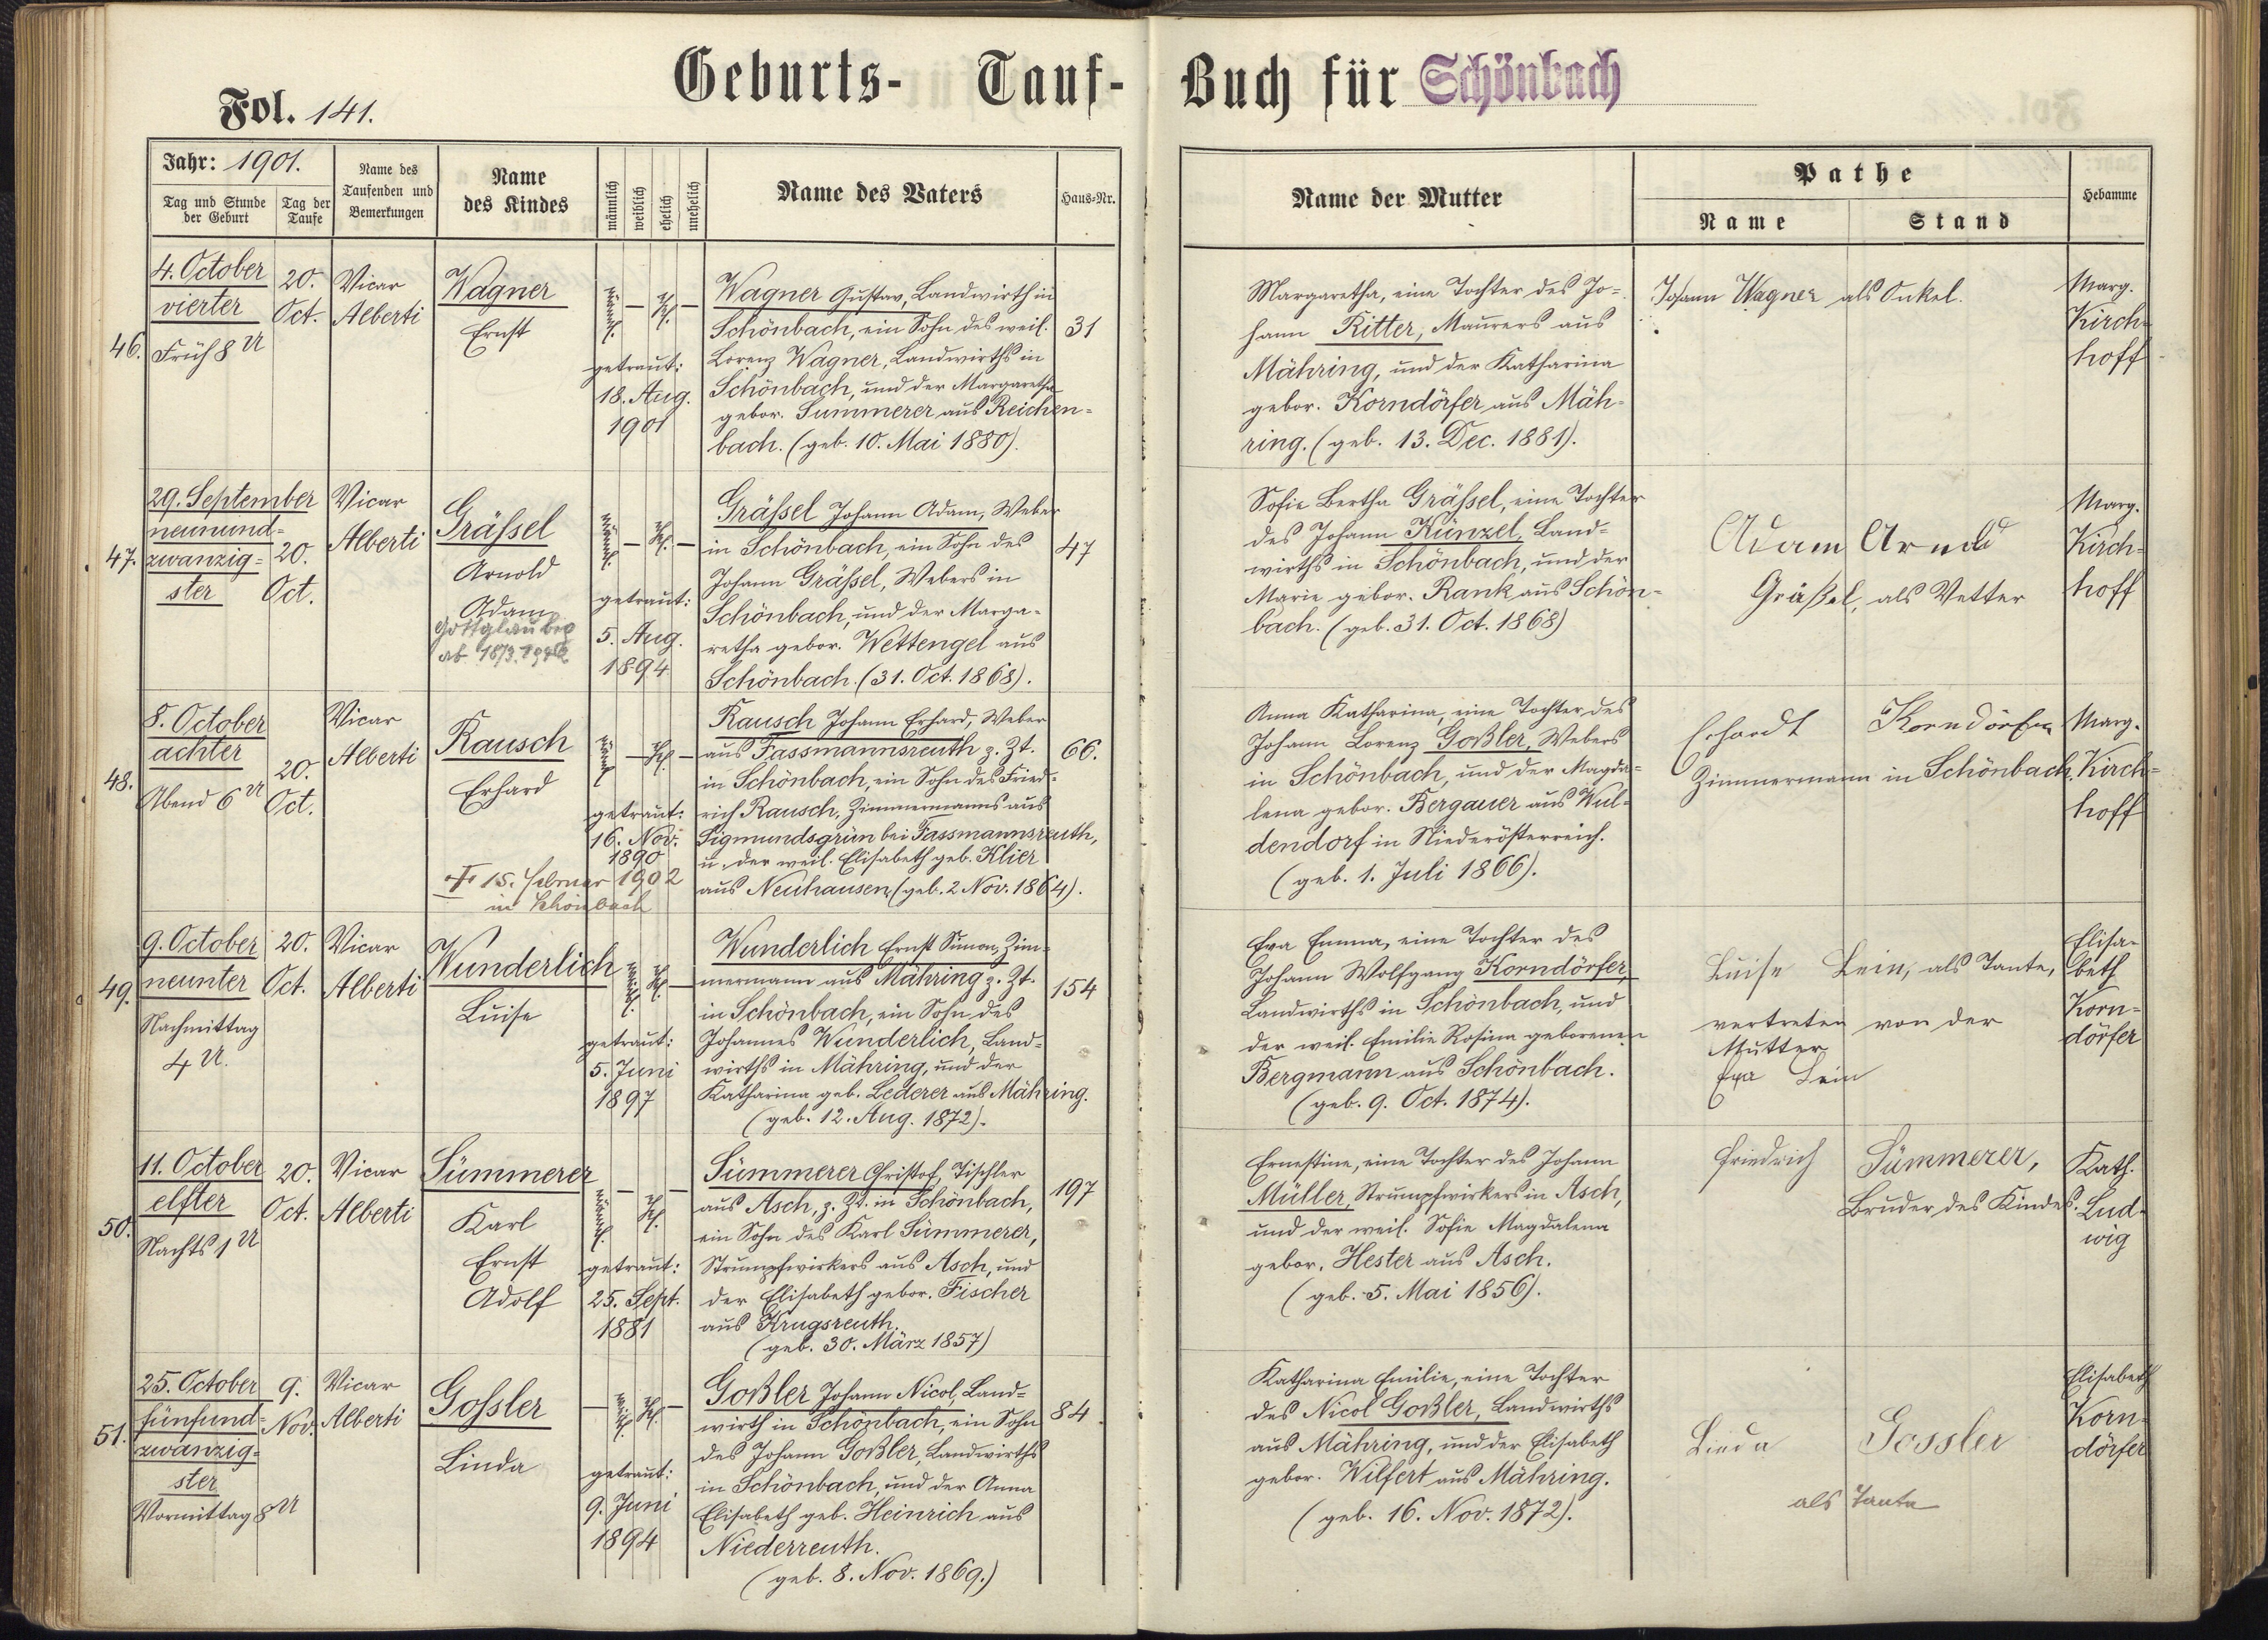 Geburts- Tauf- Buch für Schönbach
Fol. 141.
Jahr: 1901.
Tag und Stunde der Geburt
Tag der Taufe
Name des Taufenden und Bemerkungen
Name des Kindes
männlich
weiblich
ehelich
unehelich
Name des Vaters
Haus-Nr.
Name der Mutter
Pathe
Name
Stand
Hebamme
46.
4. October
vierter
Früh 8 U
20.
Oct.
Vicar
Alberti
Wagner
Ernst
männl. — ehl. —
getraut:
18. Aug.
1901
Wagner Gustav, Landwirth in
Schönbach, ein Sohn des weil.
Lorenz Wagner, Landwirths in
Schönbach, und der Margaretha
gebor. Summerer aus Reichen-
bach. (geb. 10. Mai 1880).
31
Margaretha, eine Tochter des Jo-
hann Ritter, Maurers aus
Mähring, und der Katharina
gebor. Korndörfer aus Mäh-
ring. (geb. 13. Dec. 1881).
Johann Wagner als Onkel.
Marg.
Kirch-
hoff
47.
29. September
neunund-
zwanzig-
ster
20.
Oct.
Vicar
Alberti
Gräßel
Arnold
Adam
Gottglaubig
ab
männl. — ehl. —
getraut:
5. Aug.
1894
Gräßel Johann Adam, Weber
in Schönbach, ein Sohn des
Johann Gräßel, Webers in
Schönbach, und der Marga-
retha gebor. Wettengel aus
Schönbach. (31. Oct. 1868).
47
Sofie Bertha Gräßel, eine Tochter
des Johann Künzel, Land-
wirths in Schönbach, und der
Marie gebor. Rank aus Schön-
bach. (geb. 31. Oct. 1868)
Adam Arnold
Gräßel, als Vetter
Marg.
Kirch-
hoff
48.
8. October
achter
Abend 6 U
20.
Oct.
Vicar
Alberti
Rausch
Erhard
männl. — ehl. —
getraut:
16. Nov.
1890
† 15. Februar 1902
in Schönbach
Rausch Johann Erhard, Weber
aus Fassmannsreuth z. Zt.
in Schönbach, ein Sohn des Fried-
rich Rausch, Zimmermanns aus
Sigmundsgrün bei Fassmannsreuth,
u. der weil. Elisabeth geb. Klier
aus Neuhausen (geb. 2 Nov. 1864).
66.
Anna Katharina, eine Tochter des
Johann Lorenz Goßler, Webers
in Schönbach, und der Magda-
lena gebor. Bergauer aus Wul-
dendorf in Niederösterreich.
(geb. 1. Juli 1866).
Erhardt Korndörfer
Zimmermann in Schönbach
Marg.
Kirch-
hoff
49.
9. October
neunter
Nachmittag
4 U.
20.
Oct.
Vicar
Alberti
Wunderlich
Luise
weibl. ehl. —
getraut:
5. Juni
1897
Wunderlich Ernst Simon, Zim-
mermann aus Mähring z. Zt.
in Schönbach, ein Sohn des
Johannes Wunderlich, Land-
wirths in Mähring, und der
Katharina geb. Lederer aus Mähring.
(geb. 12. Aug. 1872).
154
Eva Emma, eine Tochter des
Johann Wolfgang Korndörfer,
Landwirths in Schönbach, und
der weil. Emilie Rosina geborenen
Bergmann aus Schönbach.
(geb. 9. Oct. 1874).
Luise Lein, als Tante,
vertreten von der
Mutter
Eva Lein
Elisa-
beth
Korn-
dörfer
50.
11. October
elfter
Nachts 1 U
20.
Oct.
Vicar
Alberti
Sümmerer
Karl
Ernst
Adolf
männl. — ehl. —
getraut:
25. Sept.
1881
Sümmerer Christof, Tischler
aus Asch, z. Zt. in Schönbach,
ein Sohn des Karl Sümmerer,
Strumpfwirkers aus Asch, und
der Elisabeth gebor. Fischer
aus Krugsreuth.
(geb. 30. März 1857)
197
Ernestine, eine Tochter des Johann
Müller, Strumpfwirkers in Asch,
und der weil. Sofie Magdalena
gebor. Hester aus Asch.
(geb. 5. Mai 1856).
Friedrich Sümmerer,
Bruder des Kindes.
Kath.
Lud-
wig
51.
25. October
fünfund-
zwanzig-
ster
Vormittag 8 U
9.
Nov.
Vicar
Alberti
Gossler
Linda
— weibl. ehl. —
getraut:
9. Juni
1894
Goßler Johann Nicol, Land-
wirth in Schönbach, ein Sohn
des Johann Goßler, Landwirths
in Schönbach, und der Anna
Elisabeth geb. Heinrich aus
Niederreuth.
(geb. 8. Nov. 1869.)
84
Katharina Emilie, eine Tochter
des Nicol Goßler, Landwirths
aus Mähring, und der Elisabeth
gebor. Wilfert aus Mähring.
(geb. 16. Nov. 1872).
Linda Gossler
als Tante
Elisabeth
Korn-
dörfer